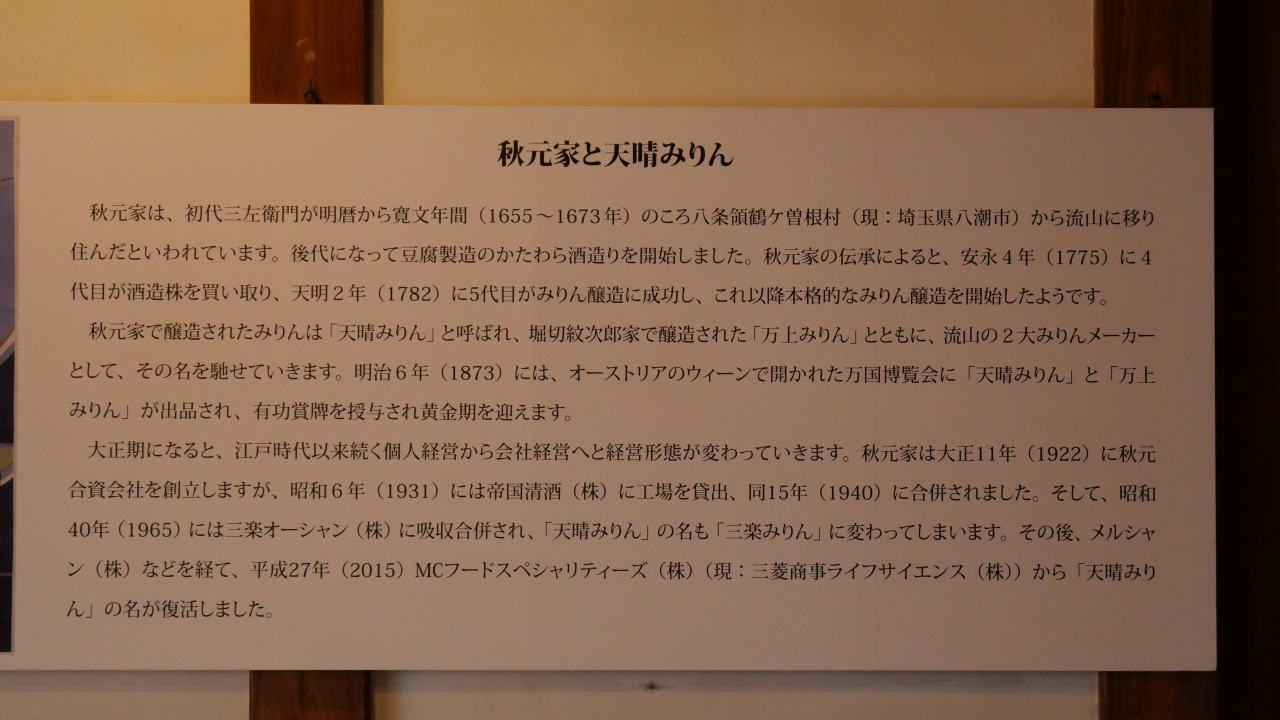 秋元家と天晴みりん
秋元家は、初代三左衛門が明暦から寛文年間（1655～1673年）のころ八条領鶴ケ曽根村（現：埼玉県八潮市）から流山に移り
住んだといわれています。後代になって豆腐製造のかたわら酒造りを開始しました。秋元家の伝承によると、安永４年（1775）に４
代目が酒造株を買い取り、天明２年（1782）に5代目がみりん醸造に成功し、これ以降本格的なみりん醸造を開始したようです。
秋元家で醸造されたみりんは「天晴みりん」と呼ばれ、堀切紋次郎家で醸造された「万上みりん」とともに、流山の２大みりんメーカー
として、その名を馳せていきます。明治６年（1873）には、オーストリアのウィーンで開かれた万国博覧会に「天晴みりん」と「万上
みりん」が出品され、有功賞牌を授与され黄金期を迎えます。
大正期になると、江戸時代以来続く個人経営から会社経営へと経営形態が変わっていきます。秋元家は大正11年（1922）に秋元
合資会社を創立しますが、昭和６年（1931）には帝国清酒（株）に工場を貸出、同15年（1940）に合併されました。そして、昭和
40年（1965）には三楽オーシャン（株）に吸収合併され、「天晴みりん」の名も「三楽みりん」に変わってしまいます。その後、メルシャ
ン（株）などを経て、平成27年（2015）MCフードスペシャリティーズ（株）（現：三菱商事ライフサイエンス（株））から「天晴みり
ん」の名が復活しました。